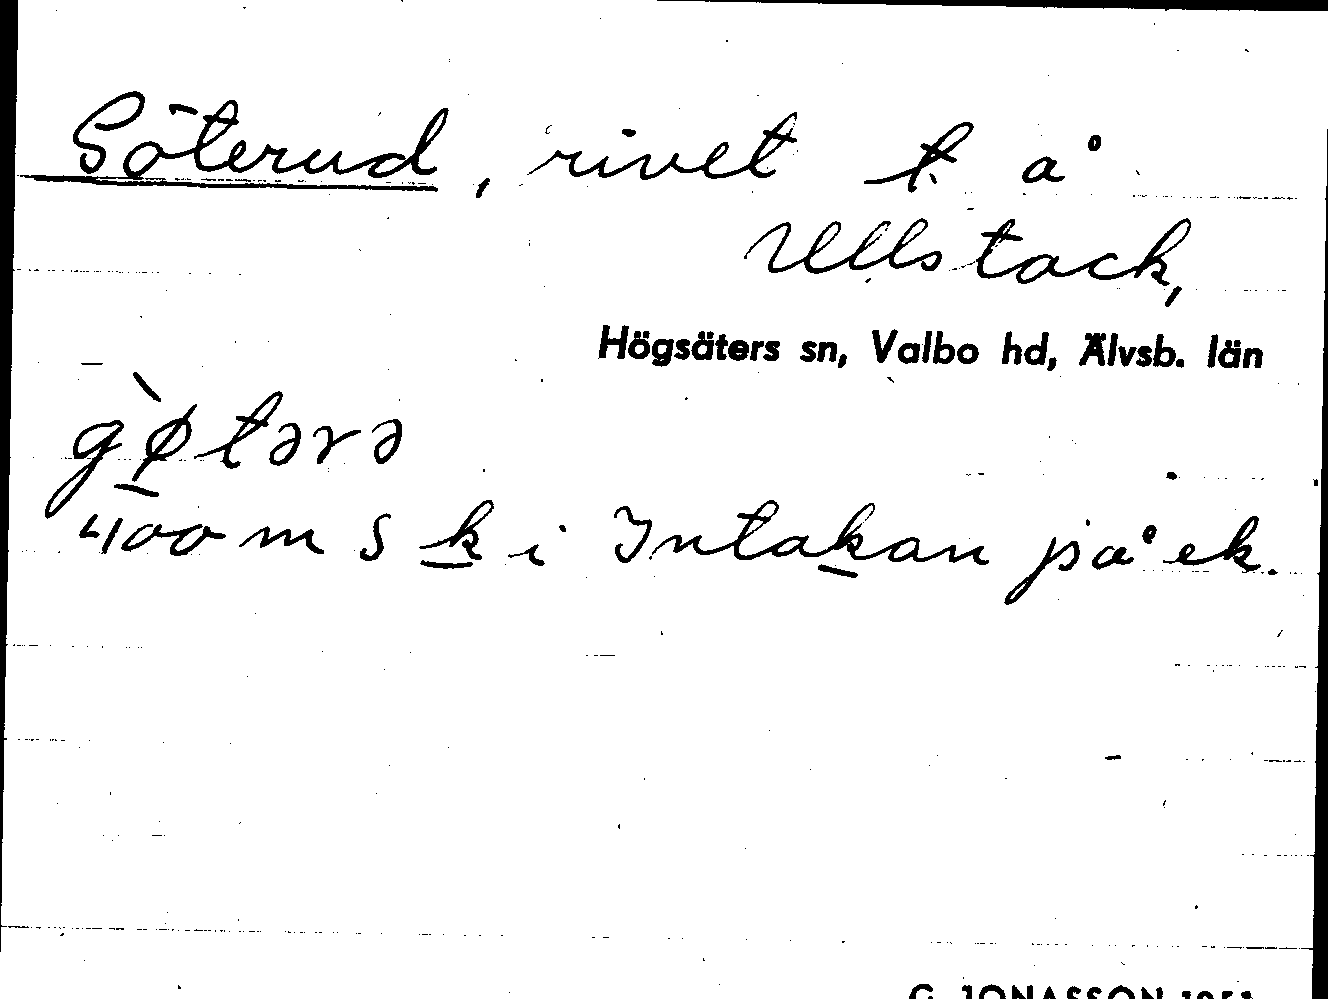 Göterud, rivet t. å
Ullstack,
Högsäters sn, Valbo hd, Älvsb. län
gø̀tərə
400 m S k i Intakan på ek.
G. JONASSON 1951